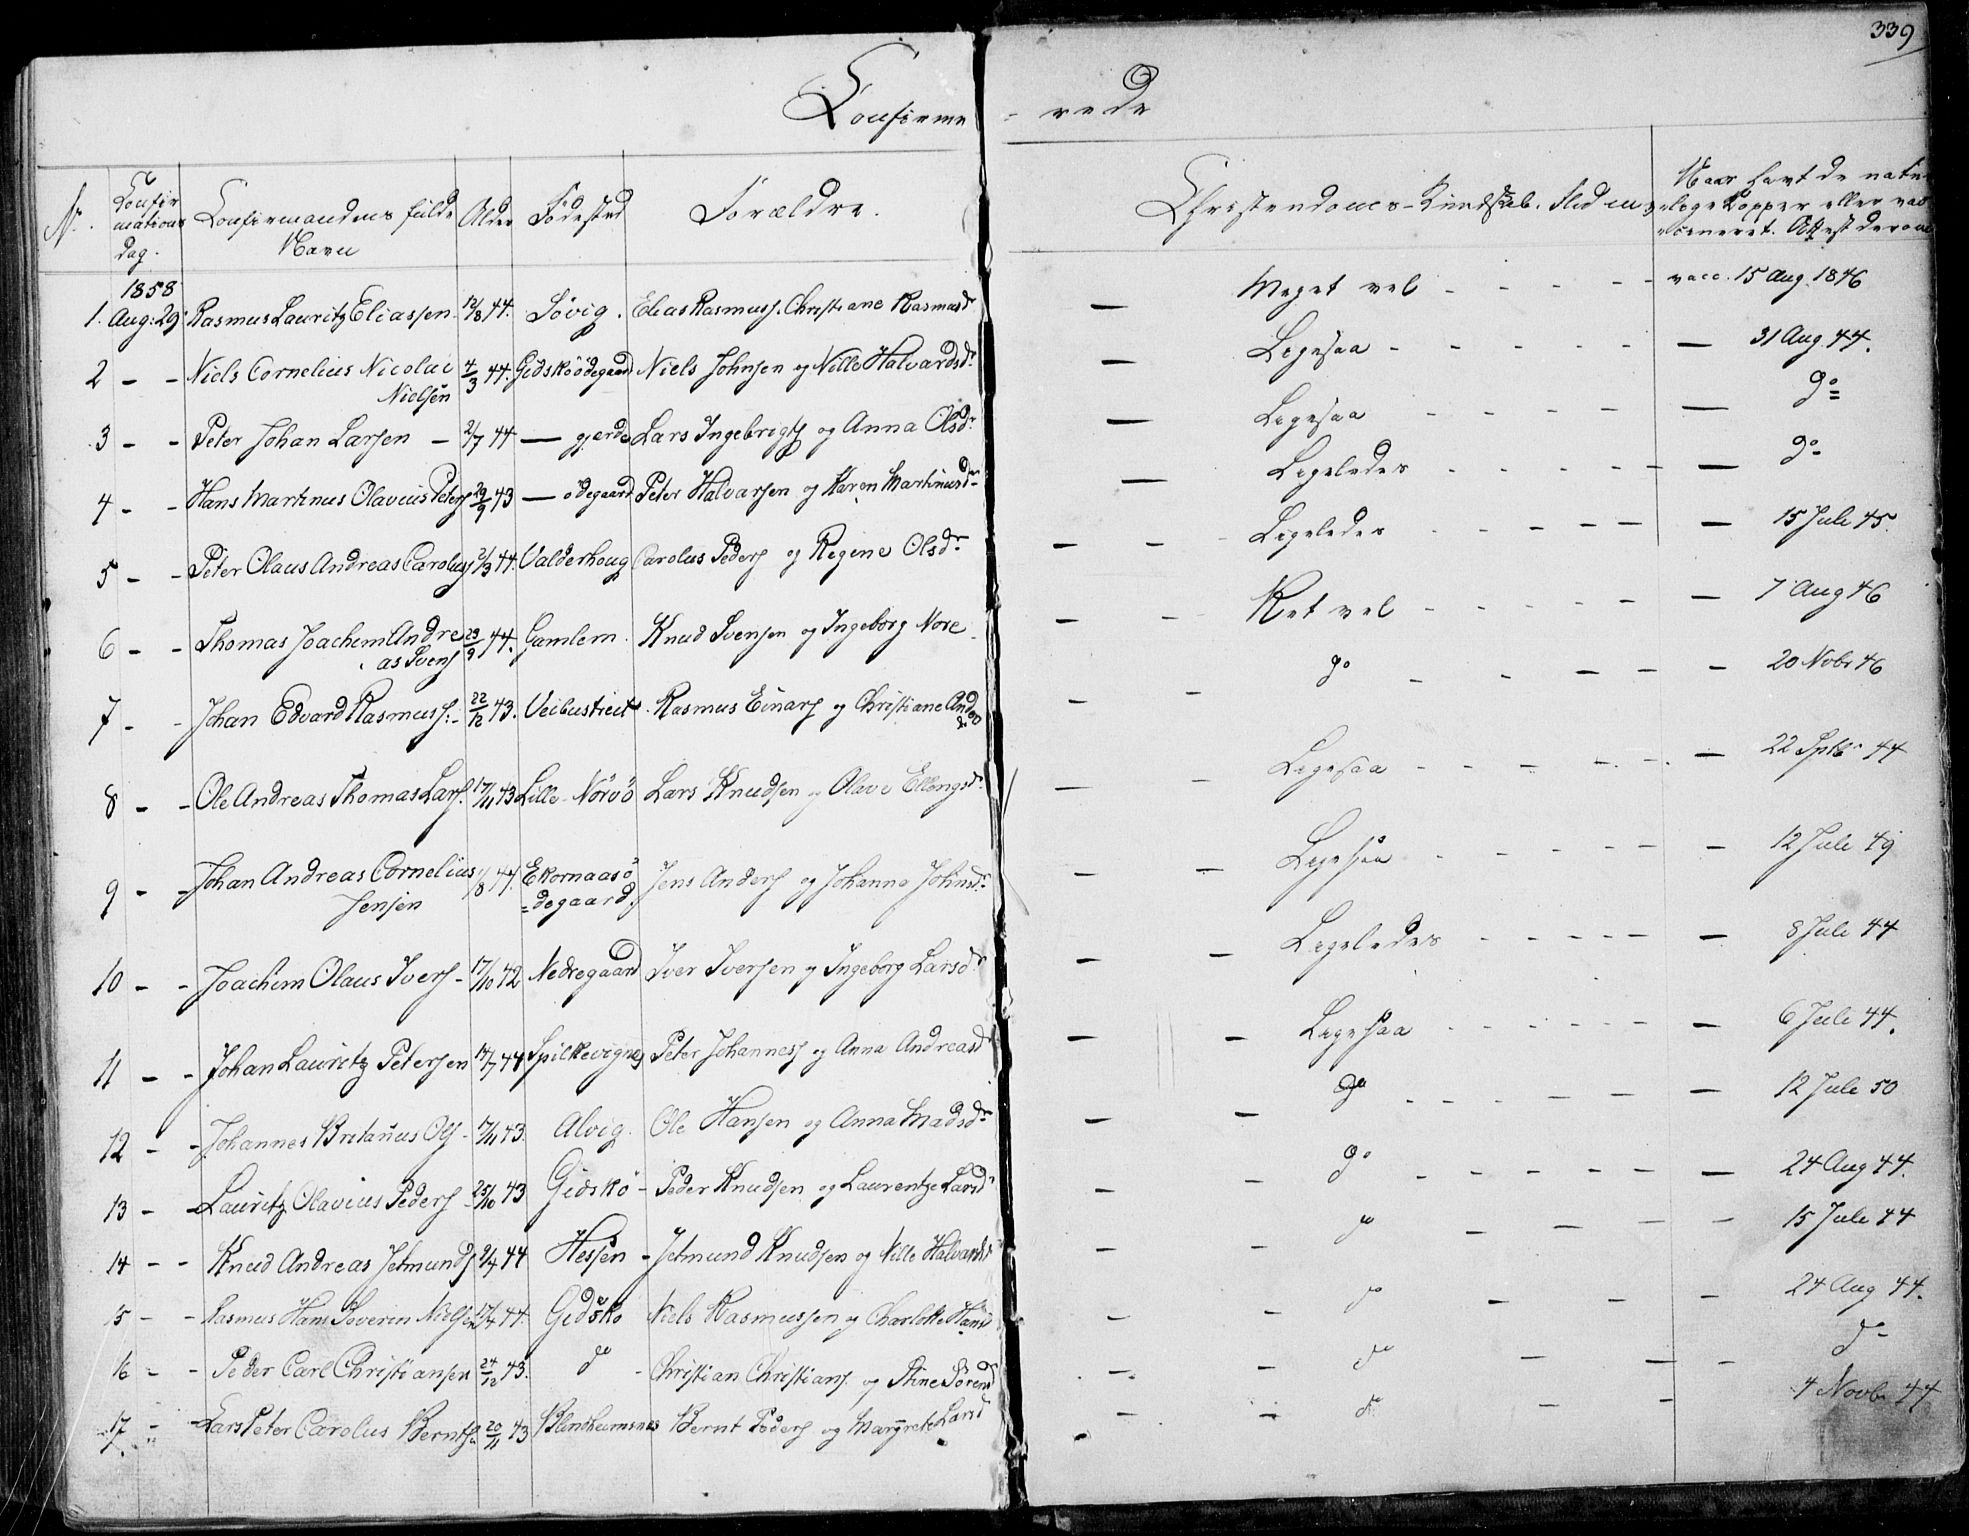 339
Confirme - rede
Nr. Confirmations dag. Confirmandens fulde Navn Alder Födested Forældre. Christendoms-Kundskab. Flid
Naar havt de natur-
lige Kopper eller vac-
cineret. Attest derom
1858
1. Aug: 29 Rasmus Lauritz Eliassen 12/8 44. Sövig. Elias Rasmuss. Christiane Rasmusd — Meget vel - - - - vacc. 15 Aug. 1846
2 - - Niels Cornelius Nicolai Nielsen 4/3 44. Gidsköödegaard Niels Johnsen og Nille Halvardsdr — Ligesaa - - - - - — 31 Aug 44.
3 - - Peter Johan Larsen - 2/7 44 — gjerde Lars Ingebrigts og Anna Olsdr — Ligesaa - - - - — do
4 - - Hans Martinus Olavius Peters 29/9 43 — ödegaard Peter Halvarsen og Karen Martinusdr — Ligeledes - - - - — do
5 - - Peter Olaus Andreas Carolus 2/3 44. Valderhoug Carolus Peders og Regine Olsdr — - - Ligeledes - - - - — 15 Juli 45.
6 - - Thomas Joachem Andreas Svens 23/9 44. Gamlem. Knud Svensen og Ingeborg Nore — - Ret vel - - - - — 7 Aug 46
7 - - Johan Edvard Rasmuss: - 22/12 43. Veibustreit. Rasmus Einars og Christiane — - do - - - - - 20 Nobr 46
8 - - Ole Andreas Thomas Lars. 17/11 43 Lille-Nörvö Lars Knudsen og Olave Ellengsdr — - Ligesaa - - - - - — 22 Sptbr 44
9 - - Johan Andreas Cornelius Jensen /8 44. Ekornaasö =degaard. Jens Anders og Johanna Johnsdr — - Ligesaa - - - - - 12 Juli 49
10 - - Joachim Olaus Ivers - 17/10 42 Nedregaard Iver Iversen og Ingeborg Larsdr — - Ligeledes - - - - — 8 Juli 44
11 - - Johan Lauritz Petersen 14/7 44 Spilkevignes Peter Johanness og Anna Andreasd — - Ligesaa - - - - — 6 Juli 44.
12 - - Johannes Britanus Ols - 17/11 43. Alvig. Ole Hansen og Anna Madsdr — - do - - - - — 12 Juli 50
13 - - Lauritz Olavius Peders - 25/10 43 Gidskö - Peder Knudsen og Laurentze Larsdr — - do - - - - — 24 Aug 44.
14 - - Knud Andreas Jetmunds 9/4 44 Hessen - Jetmund Knudsen og Nille Halvardsd — - do - - - - - 15 Juli 44
15 - - Rasmus Hans Severin Nielsen 17/4 44. Gidskö Niels Rasmussen og Charlotte Hansd — - do - - - 24 Aug 44.
16 - - Peder Carl Christiansen 24/12 43. do - Christian Christians. og Stine Sörensd — - do - - - do
17 - - Lars Peter Carolus Bernts. 20/11 43 Blindheimsnes Bernt Peders og Margrete Larsd — - do - - 4 Novbr 44